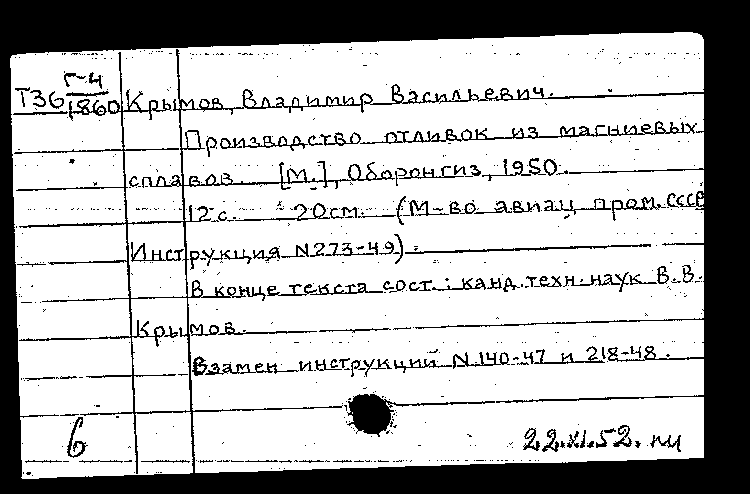 Г-4
Т36 1860 Крымов, Владимир Васильевич.
Производство отливок из магниевых
сплавов. [М.], Оборонгиз, 1950.
12 с. 20см. (М-во авиац пром. СССР
Инструкция N273-49).
В конце текста сост.: канд.техн.наук В.В.
Крымов.
Взамен инструкций N.140-47 и 218-48.
6
22.XI.52.